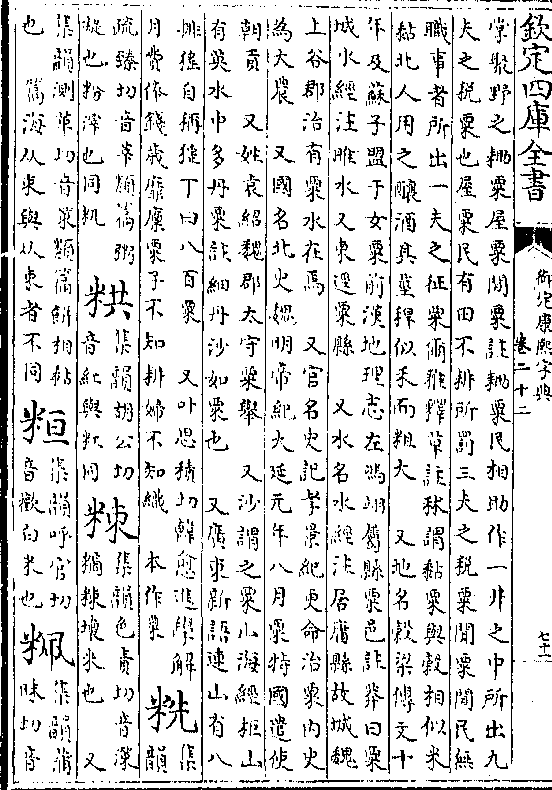 欽定四庫全書
御定康熙字典
卷二十二
七十一
掌聚野之耡粟屋粟閒粟註耡粟民相助作一井之中所出九
夫之稅粟也屋粟民有田不耕所罰三夫之稅粟閒粟閒民無
職事者所出一夫之征粟爾雅釋草註秫謂黏粟與穀相似米
黏北人用之釀酒其莖稈似禾而粗大 又地名穀梁傳文十
年及蘇子盟于女粟前漢地理志左馮翊屬縣粟邑註莽曰粟
城水經注睢水又東逕粟縣 又水名水經注居庸縣故城魏
上谷郡治有粟水在焉 又官名史記孝景紀更命治粟內史
為大農 又國名北史魏明帝紀大延元年八月粟特國遣使
朝貢 又姓袁紹魏郡太守粟舉 又沙謂之粟山海經柜山
有英水中多丹粟註細丹沙如粟也 又廣東新語連山有八
排猺自稱猺丁曰八百粟 又叶思積切韓愈進學解
月費俸錢歲靡廩粟子不知耕婦不知織 本作𥻆 粏 集韻
疏臻切音莘類篇粥
凝也粉滓也同籸 粠 集韻胡公切
音紅與䉺同 𥹥 集韻色責切音溹
糏𥹥壞米也 又
集韻測革切音策類篇餅相黏
也 篇海从朿與从束者不同 䊐 集韻呼官切
音歡白米也 䊈 集韻蒲
昧切音